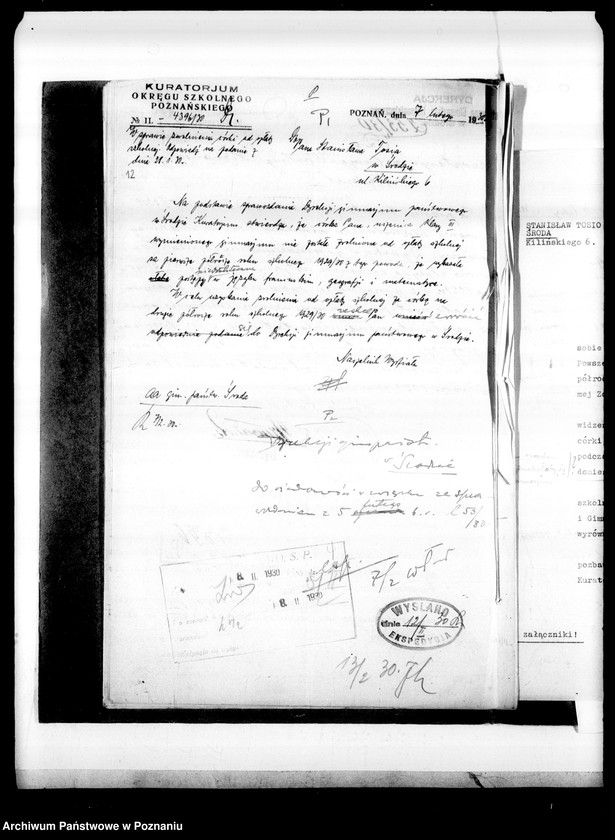 KURATORJUM
OKRĘGU SZKOLNEGO
POZNAŃSKIEGO
№ II. - 4396/30
POZNAŃ, dnia 7 lutego 1930
P1
W sprawie zwolnienia córki od opłaty
szkolnej. Odpowiedź na podanie z
dnia 28.1.30.
12
Pana Stanisława Tosia
w Środzie
ul. Kilińskiego 6
Na podstawie sprawozdania Dyrekcji gimnazjum państwowego
w Środzie Kuratorjum stwierdza, że córka Pana, uczenica klasy II
wymienionego gimnazjum nie została zwolniona od opłaty szkolnej
za pierwsze półrocze roku szkolnego 1929/30 z tego powodu, że wykazała
niedostateczne
postępy w języku francuskim, geografji i matematyce.
W celu uzyskania zwolnienia od opłaty szkolnej za córkę na
drugie półrocze roku szkolnego 1929/30 Pan zwrócić
odpowiednie podanie do Dyrekcji gimnazjum państwowego w Środzie.
Naczelnik Wydziału
gim. państw. Środa
P2
Dyrekcji gim. państw.
w Środzie
do wiadomości w związku ze spra
wozdaniem z 5 lutego b. r. l 53/
/30
8 II 1930
8 II 1930
7/2
WYSŁANO
dnia 12/II 30
EKSPEDYCJA
13/2 30.
STANISŁAW TOSIO
ŚRODA
Kilińskiego 6.
sobie
Powsze
półroc
mej Ze
widzen
córki
podcza
donien
szkoln
i Gimn
wyrówn
pozbaw
Kurato
załączniki!
Archiwum Państwowe w Poznaniu